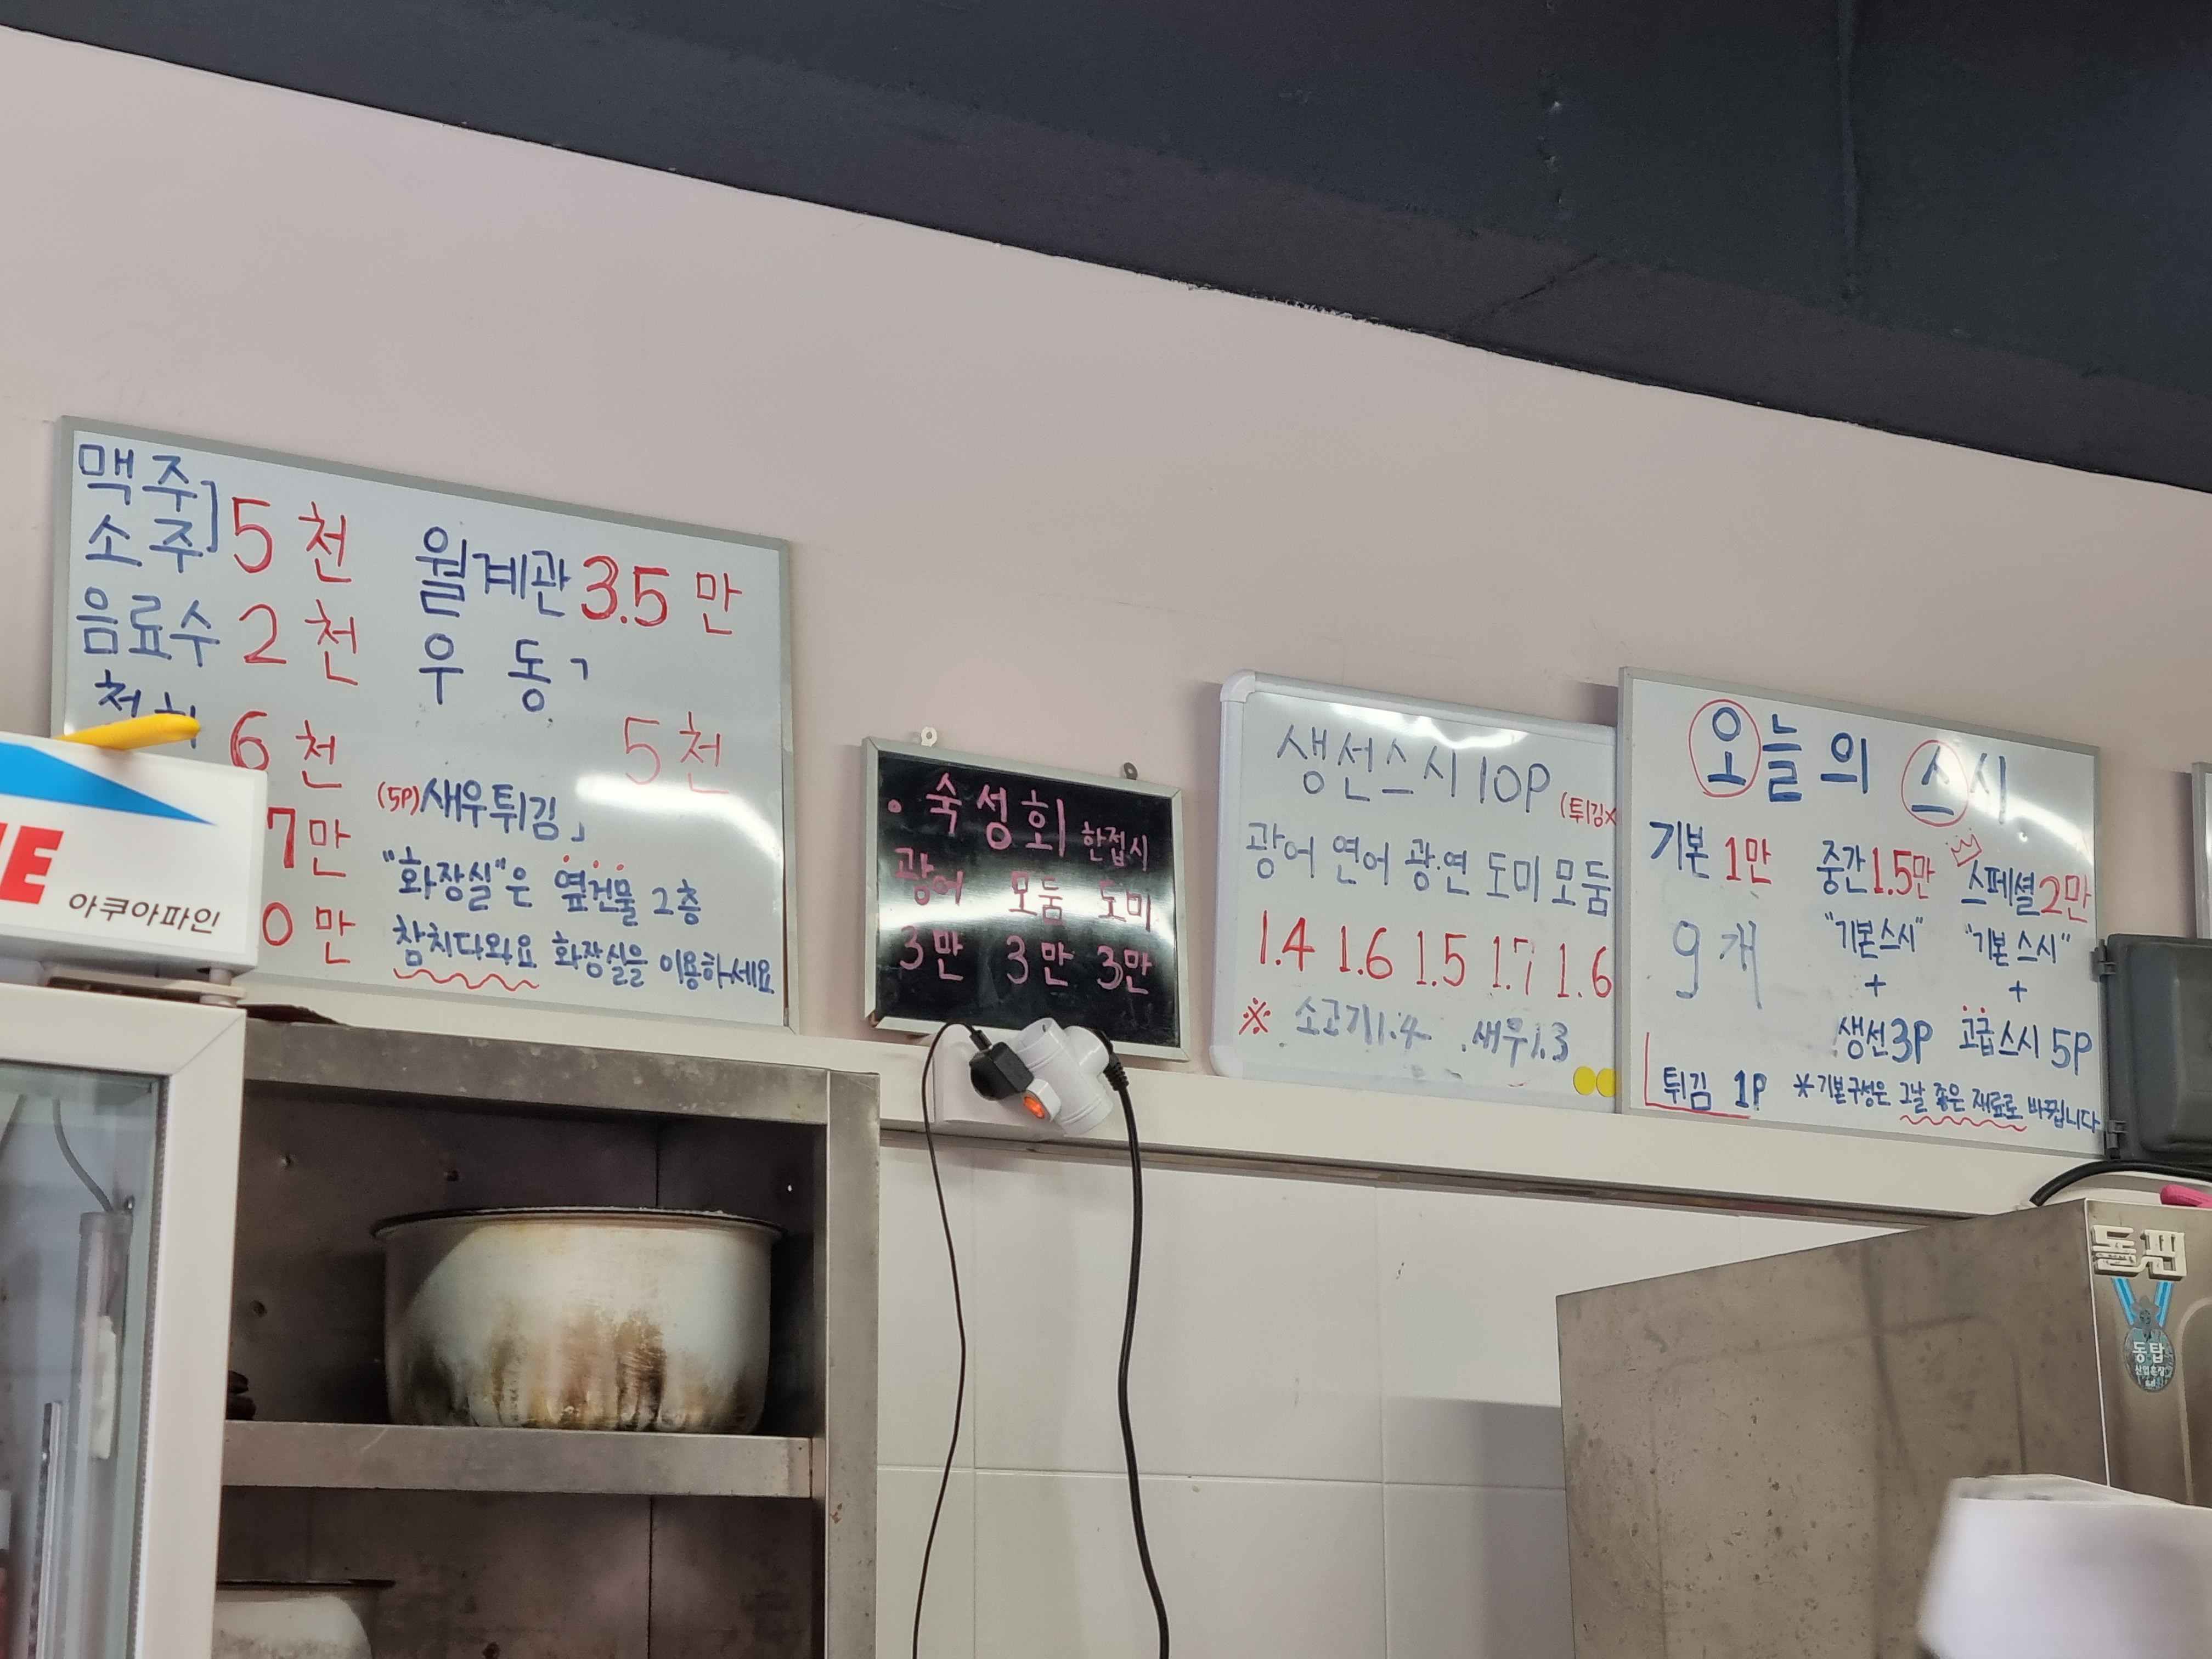 맥주
소주] 5천
음료수 2천
청하 6천
7만
0만
월계관 3.5만
우 동ㄱ
5천
(5P)새우튀김」
"화장실"은 옆건물 2층
참치다와요 화장실을 이용하세요
아쿠아파인
• 숙성회 한접시
광어 모둠 도미
3만 3만 3만
생선스시 10P (튀김x
광어 연어 광·연 도미 모둠
1.4 1.6 1.5 1.7 1.6
※ 소고기1.4 . 새우1.3
오늘의 스시
기본 1만
9개
튀김 1P
중간1.5만
"기본스시"
+
생선3P
스페셜2만
"기본 스시"
+
고급스시 5P
*기본구성은 그날 좋은 재료로 바뀝니다
동탑